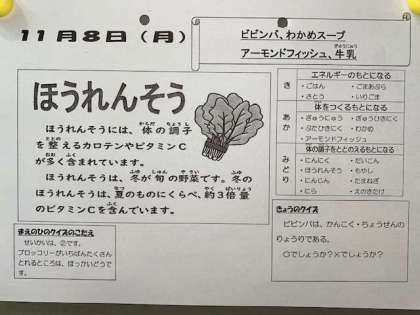 11月8日（月）
ビビンバ、わかめスープ
アーモンドフィッシュ、牛乳
ぎゅうにゅう
ほうれんそう
からだ ちょうし
ほうれんそうには、体の調子
ととの
を整えるカロテンやビタミンC
おお ふく
が多く含まれています。
ふゆ しゅん やさい ふゆ
ほうれんそうは、冬が旬の野菜です。冬の
なつ やく ばいりょう
ほうれんそうは、夏のものにくらべ、約3倍量
ふく
のビタミンCを含んでいます。
エネルギーのもとになる
き
・ごはん ・ごまあぶら
・さとう ・いりごま
体をつくるもとになる
あか
・ぎゅうにゅう ・ぎゅうひきにく
・ぶたひきにく ・わかめ
・アーモンドフィッシュ
体の調子をととのえるもとになる
みどり
・にんにく ・だいこん
・ほうれんそう ・もやし
・にんじん ・たまねぎ
・にら ・えのきたけ
まえのひのクイズのこたえ
せいかいは、②です。
ブロッコリーがいちばんたくさん
とれるところは、ほっかいどうで
す。
きょうのクイズ
ビビンバは、かんこく・ちょうせんの
りょうりである。
〇でしょうか？×でしょうか？